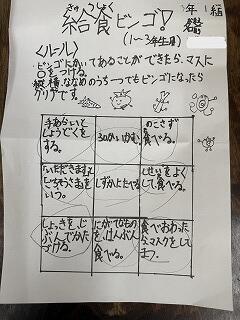 きゅうしょく
給食ビンゴ!
(1~3年生用)
年1組
<ルール>
ビンゴにかいてあることができたら、マスに
○をつける。
縦、横、ななめのうち1つでもビンゴになったら
クリアです。
手あらいと
しょうどくを
する。
30かいかむ。
のこさず
食べる。
「いただきます」と
「ごちそうさま」を
いう。
しずかにたべる
しせいをよく
して食べる。
しょっきをじ
ぶんでかた
づける。
にがてなもの
をはんぶん
食べる。
食べおわった
らマスクをし
まつ。